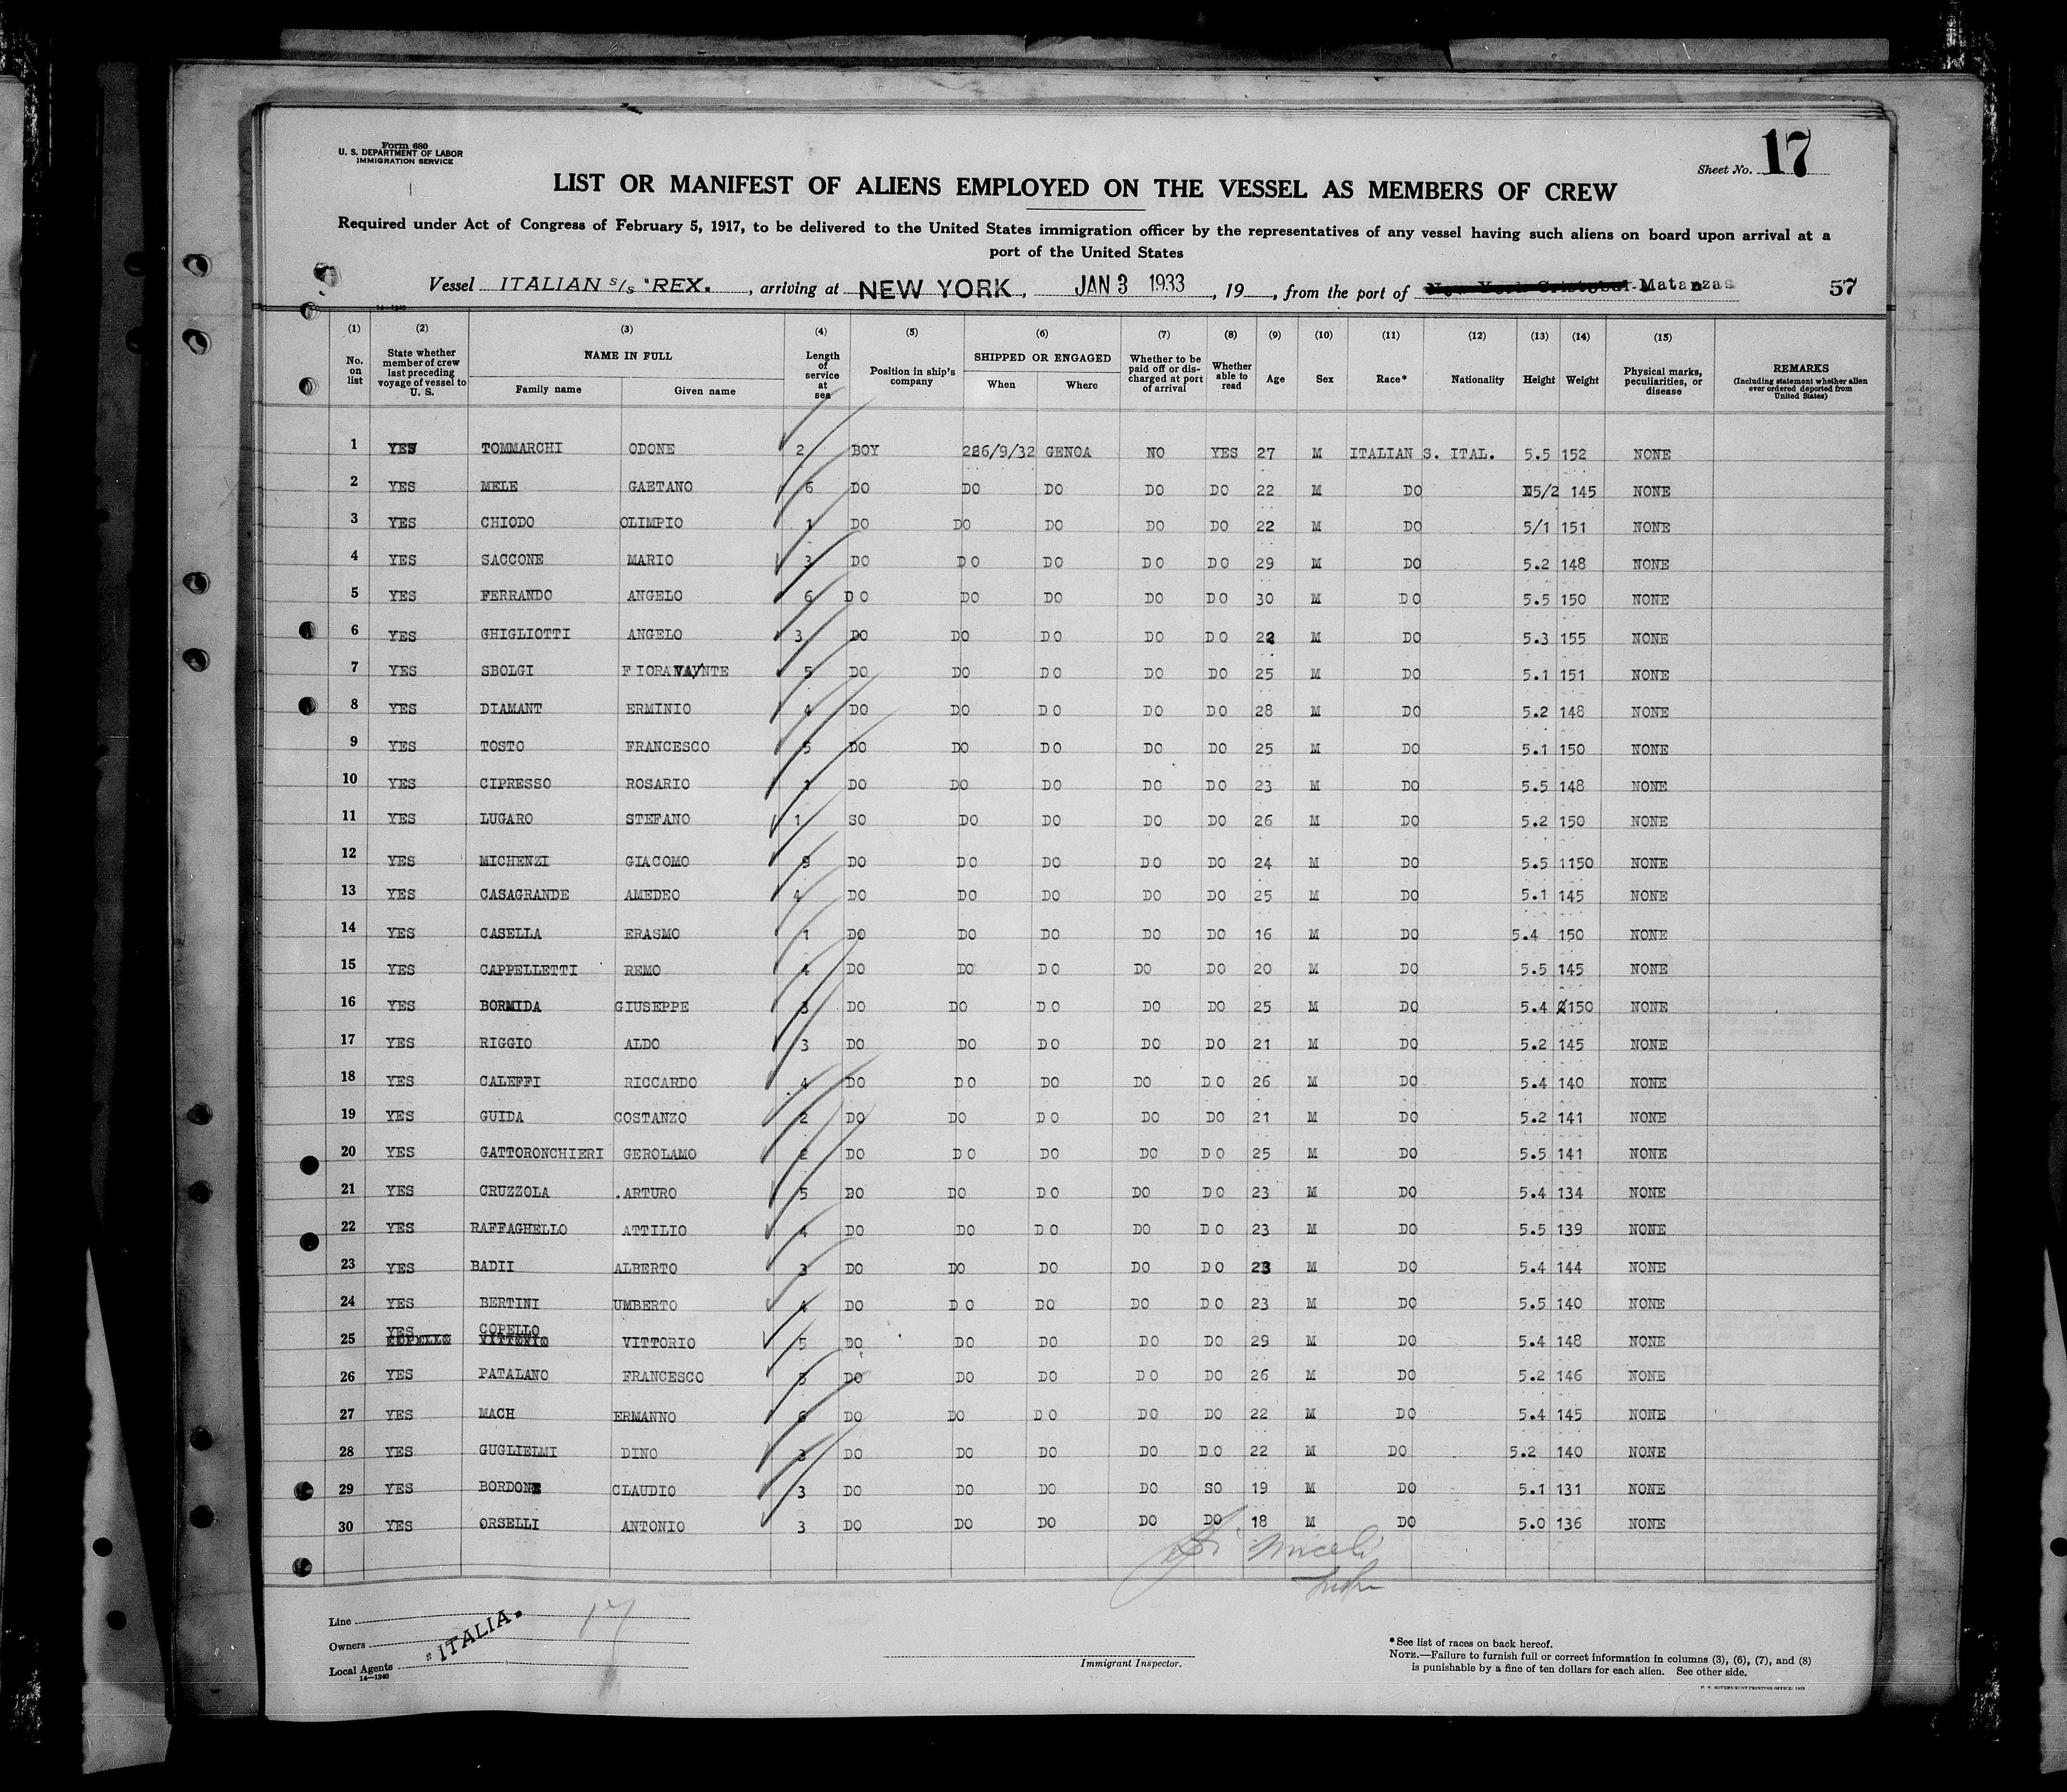 Form 680
U. S. DEPARTMENT OF LABOR
IMMIGRATION SERVICE
Sheet No. 17
LIST OR MANIFEST OF ALIENS EMPLOYED ON THE VESSEL AS MEMBERS OF CREW
Required under Act of Congress of February 5, 1917, to be delivered to the United States immigration officer by the representatives of any vessel having such aliens on board upon arrival at a
port of the United States
Vessel ITALIAN s/s "REX. , arriving at NEW YORK , JAN 3 1933 , 19 , from the port of New York Cristobal Matanzas 57
14—1240
(1) (2) (3) (4) (5) (6) (7) (8) (9) (10) (11) (12) (13) (14) (15)
No. on list State whether member of crew last preceding voyage of vessel to U. S. NAME IN FULL Family name Given name Length of service at sea Position in ship's company SHIPPED OR ENGAGED When Where Whether to be paid off or discharged at port of arrival Whether able to read Age Sex Race* Nationality Height Weight Physical marks, peculiarities, or disease REMARKS (Including statement whether alien ever ordered deported from United States)
1 YES TOMMARCHI ODONE 2 BOY 286/9/32 GENOA NO YES 27 M ITALIAN S. ITAL. 5.5 152 NONE
2 YES MELE GAETANO 6 DO DO DO DO DO 22 M DO 5/2 145 NONE
3 YES CHIODO OLIMPIO 1 DO DO DO DO DO 22 M DO 5/1 151 NONE
4 YES SACCONE MARIO 3 DO DO DO DO DO 29 M DO 5.2 148 NONE
5 YES FERRANDO ANGELO 6 DO DO DO DO DO 30 M DO 5.5 150 NONE
6 YES GHIGLIOTTI ANGELO 3 DO DO DO DO DO 22 M DO 5.3 155 NONE
7 YES SBOLGI FIORAVA/NTE 5 DO DO DO DO DO 25 M DO 5.1 151 NONE
8 YES DIAMANT ERMINIO 4 DO DO DO DO DO 28 M DO 5.2 148 NONE
9 YES TOSTO FRANCESCO 5 DO DO DO DO DO 25 M DO 5.1 150 NONE
10 YES CIPRESSO ROSARIO 1 DO DO DO DO DO 23 M DO 5.5 148 NONE
11 YES LUGARO STEFANO 1 SO DO DO DO DO 26 M DO 5.2 150 NONE
12 YES MICHENZI GIACOMO 9 DO DO DO DO DO 24 M DO 5.5 1150 NONE
13 YES CASAGRANDE AMEDEO 4 DO DO DO DO DO 25 M DO 5.1 145 NONE
14 YES CASELLA ERASMO 1 DO DO DO DO DO 16 M DO 5.4 150 NONE
15 YES CAPPELLETTI REMO 4 DO DO DO DO DO 20 M DO 5.5 145 NONE
16 YES BORMIDA GIUSEPPE 3 DO DO DO DO DO 25 M DO 5.4 150 NONE
17 YES RIGGIO ALDO 3 DO DO DO DO DO 21 M DO 5.2 145 NONE
18 YES CALEFFI RICCARDO 4 DO DO DO DO DO 26 M DO 5.4 140 NONE
19 YES GUIDA COSTANZO 2 DO DO DO DO DO 21 M DO 5.2 141 NONE
20 YES GATTORONCHIERI GEROLAMO 2 DO DO DO DO DO 25 M DO 5.5 141 NONE
21 YES CRUZZOLA .ARTURO 5 DO DO DO DO DO 23 M DO 5.4 134 NONE
22 YES RAFFAGHELLO ATTILIO 4 DO DO DO DO DO 23 M DO 5.5 139 NONE
23 YES BADII ALBERTO 3 DO DO DO DO DO 23 M DO 5.4 144 NONE
24 YES BERTINI UMBERTO 4 DO DO DO DO DO 23 M DO 5.5 140 NONE
YES COPELLO
25 COPELLO VITTORIO VITTORIO 5 DO DO DO DO DO 29 M DO 5.4 148 NONE
26 YES PATALANO FRANCESCO 5 DO DO DO DO DO 26 M DO 5.2 146 NONE
27 YES MACH ERMANNO 6 DO DO DO DO DO 22 M DO 5.4 145 NONE
28 YES GUGLIELMI DINO 3 DO DO DO DO DO 22 M DO 5.2 140 NONE
29 YES BORDONE CLAUDIO 3 DO DO DO DO SO 19 M DO 5.1 131 NONE
30 YES ORSELLI ANTONIO 3 DO DO DO DO DO 18 M DO 5.0 136 NONE
Miceli
Line
Owners "ITALIA. 17
Local Agents
14—1240
Immigrant Inspector.
*See list of races on back hereof.
NOTE.—Failure to furnish full or correct information in columns (3), (6), (7), and (8)
is punishable by a fine of ten dollars for each alien. See other side.
U. S. GOVERNMENT PRINTING OFFICE: